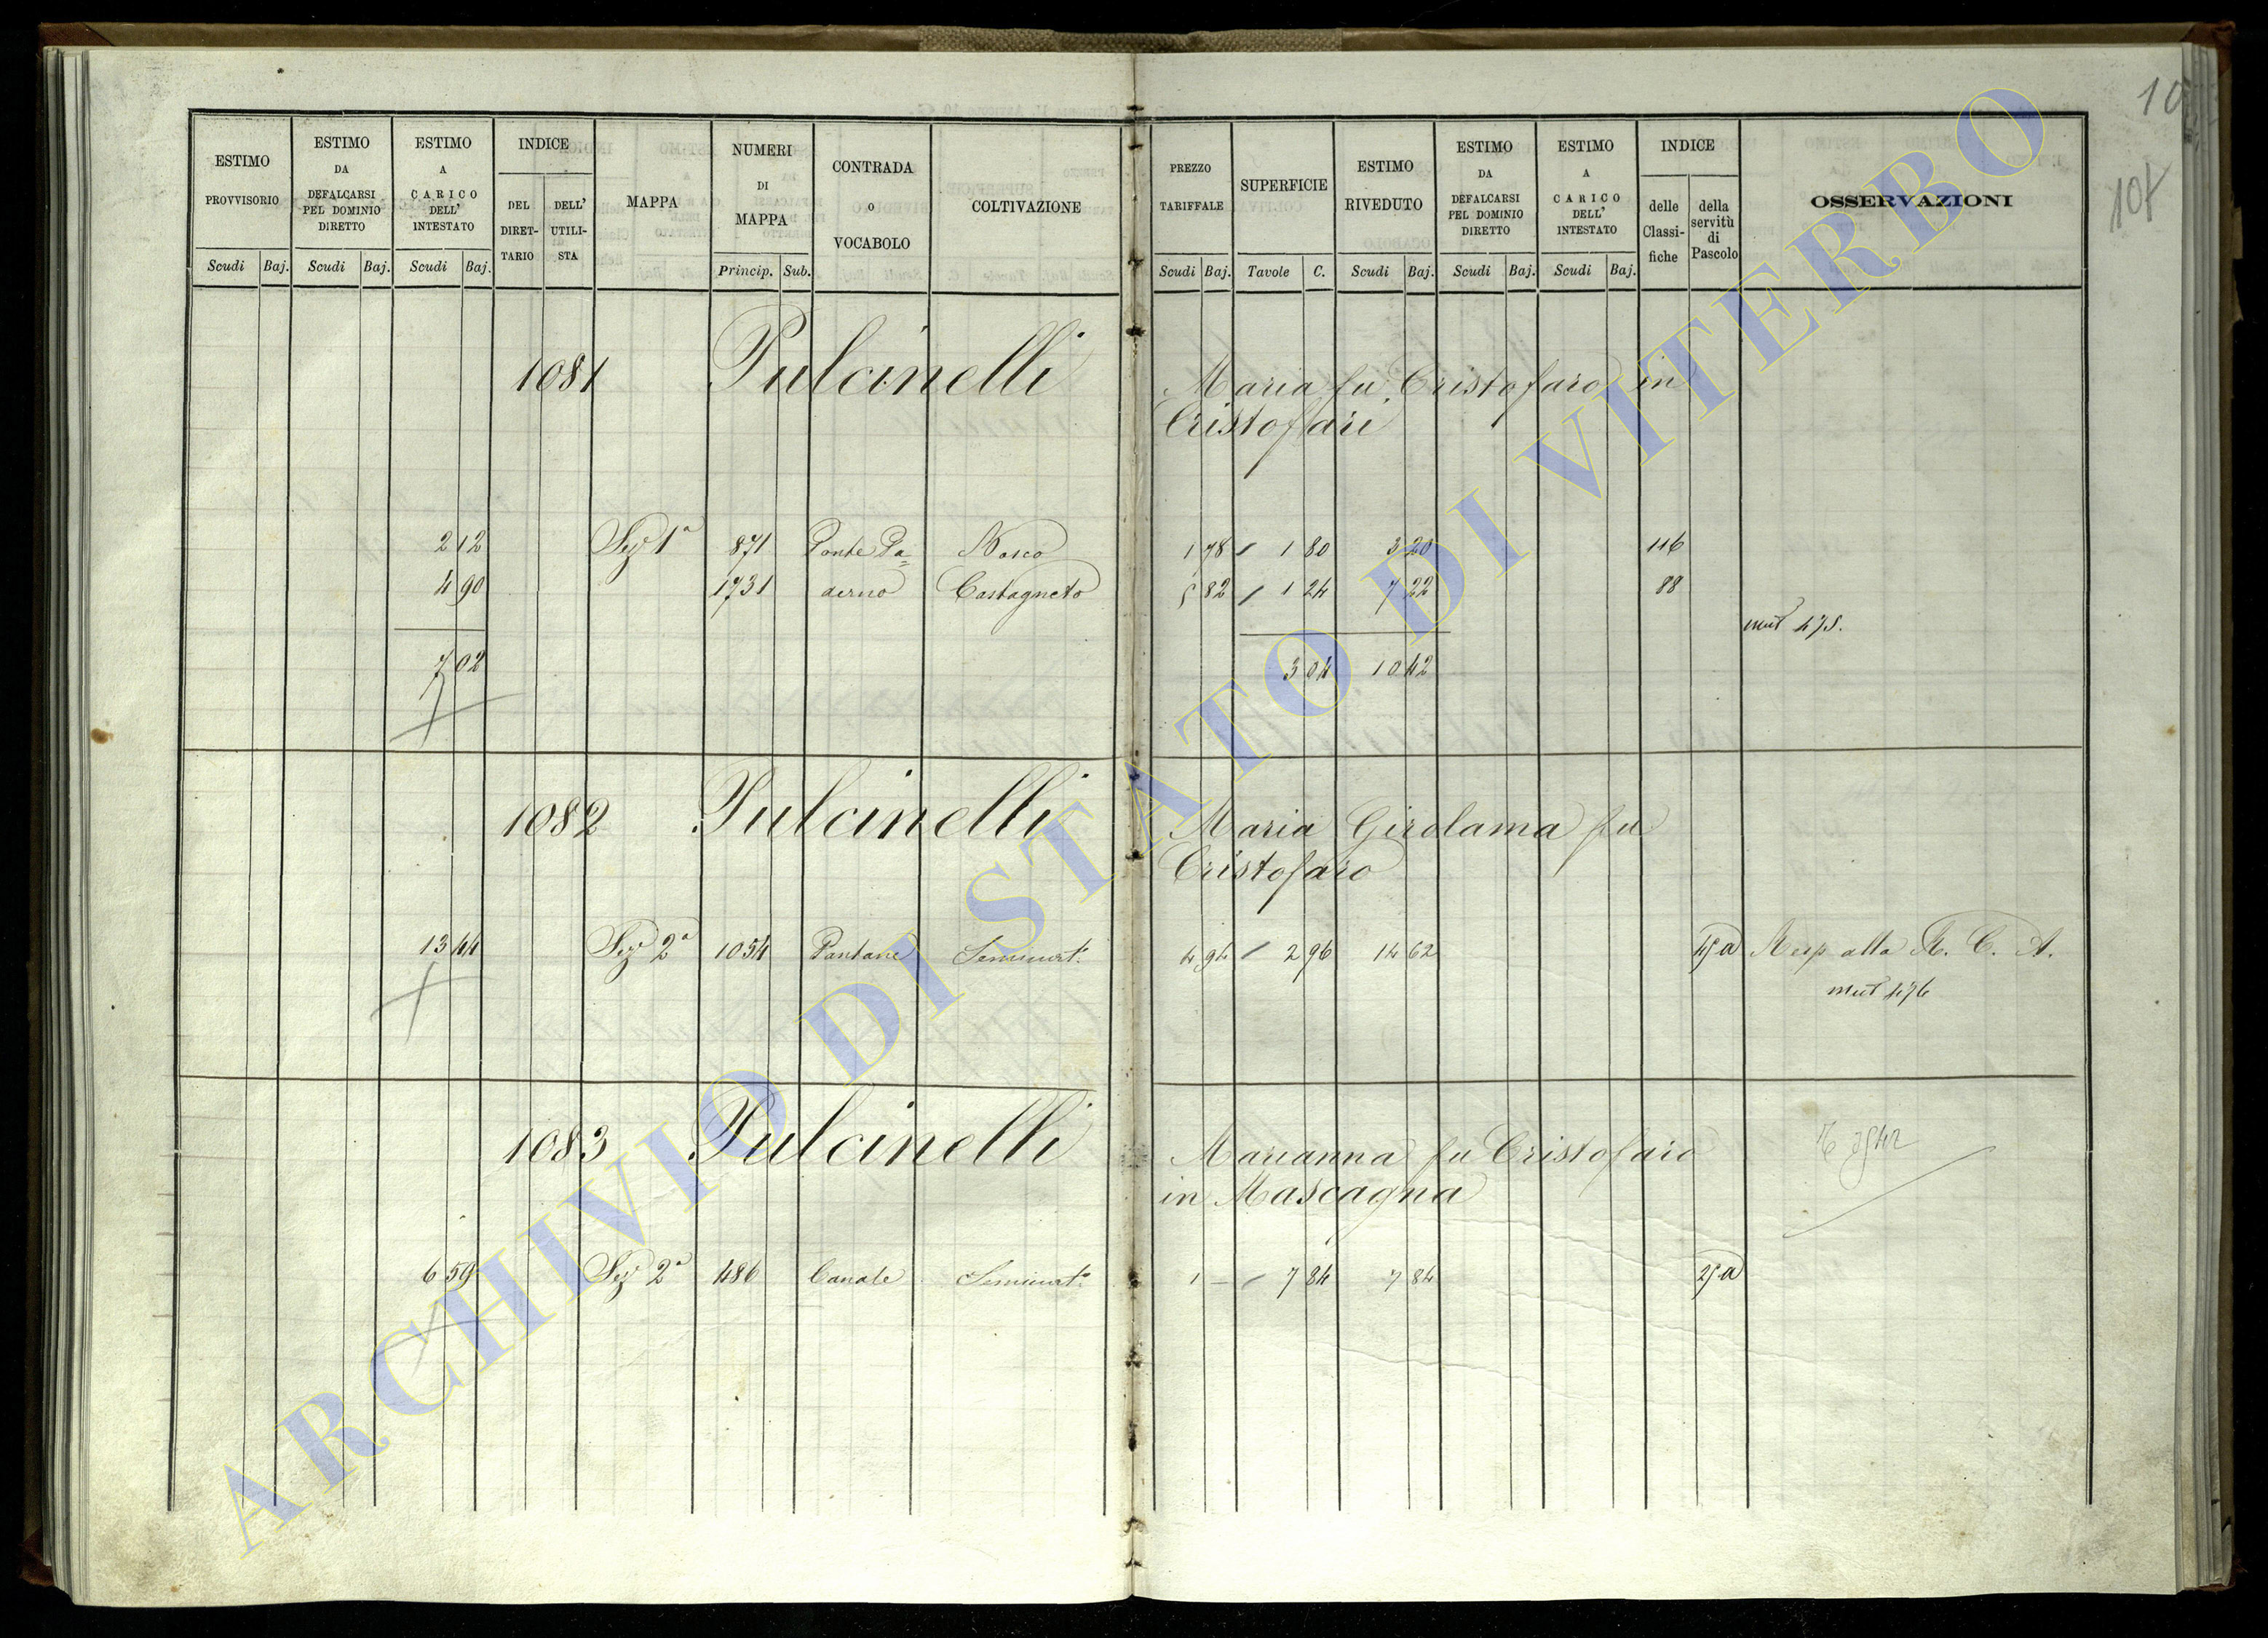 10
107
ESTIMO PROVVISORIO
ESTIMO DA DEFALCARSI PEL DOMINIO DIRETTO
ESTIMO A CARICO DELL' INTESTATO
INDICE
DEL DIRET- TARIO
DELL' UTILI- STA
MAPPA
NUMERI DI MAPPA
CONTRADA O VOCABOLO
COLTIVAZIONE
Scudi Baj. Scudi Baj. Scudi Baj. Princip. Sub.
PREZZO TARIFFALE
SUPERFICIE
ESTIMO RIVEDUTO
ESTIMO DA DEFALCARSI PEL DOMINIO DIRETTO
ESTIMO A CARICO DELL' INTESTATO
INDICE
delle Classi- fiche
della servitù di Pascolo
OSSERVAZIONI
Scudi Baj. Tavole C. Scudi Baj. Scudi Baj. Scudi Baj.
1081 Pulcinelli Maria fu Cristofaro in
Cristofari
2 12 Sez 1a 871 Ponte Pa= Bosco 1 78 1 80 3 20 116
4 90 1731 derno Castagneto 5 82 1 24 7 22 88
mut 475.
7 02 3 04 10 42
1082 Pulcinelli Maria Girolama fu
Cristofaro
13 44 Sez 2a 1054 Pantane Seminat. 4 94 2 96 14 62 Resp alla R. C. A.
mut 476
1083 Pulcinelli Marianna fu Cristofaro
in Mascagna
6 59 Sez 2a 486 Canale Seminat. 1 — 7 84 7 84
ARCHIVIO DI STATO DI VITERBO